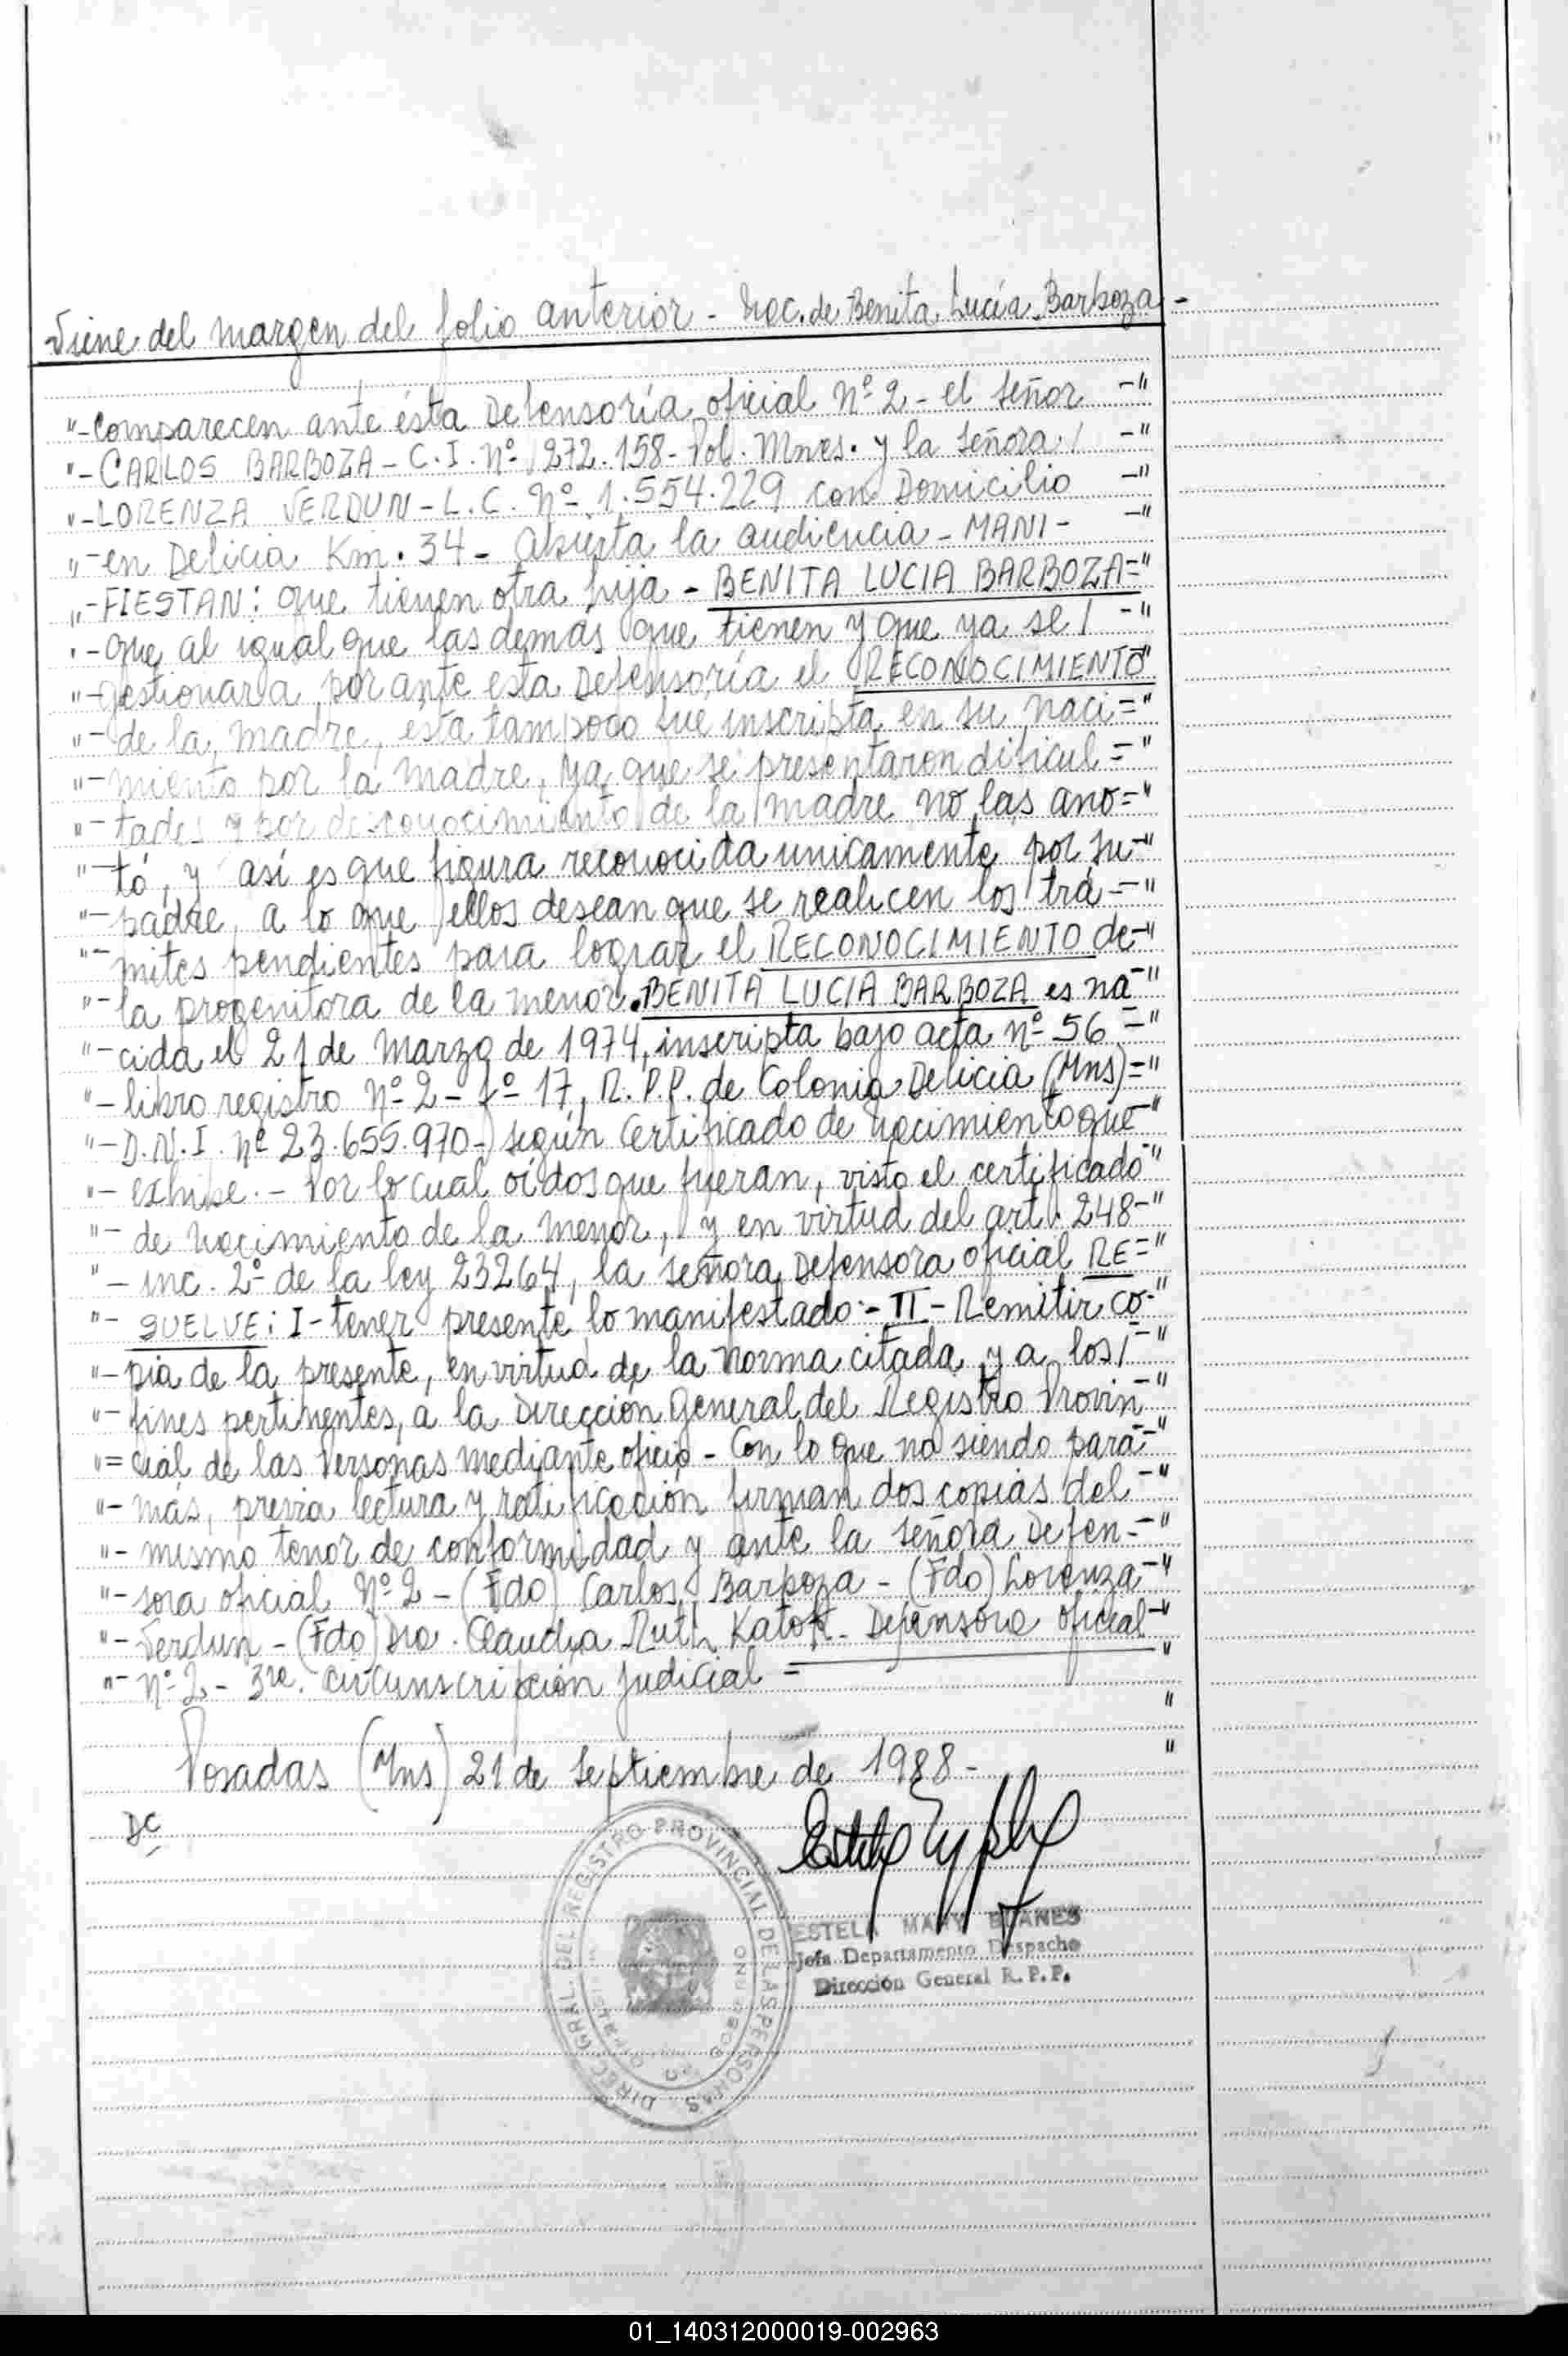 Viene del margen del folio anterior - Nac. de Benita Lucía Barboza -
"- Comparecen ante ésta Defensoría oficial Nº 2 - el señor -"
"- CARLOS BARBOZA - C.I. Nº 272.158 - Pol. Mnes. y la señora / -"
"- LORENZA VERDUN - L.C. Nº 1.554.229 con Domicilio -"
"- en Delicia Km. 34 - Abierta la audiencia - MANI- -"
"- FIESTAN: que tienen otra hija - BENITA LUCIA BARBOZA ="
"- que al igual que las demás que tienen y que ya se / -"
"- gestionara por ante esta Defensoría el RECONOCIMIENTO -"
"- de la madre, esta tampoco fue inscripta en su naci ="
"- miento por la madre, ya que se presentaron dificul = "
"- tades y por desconocimiento de la madre no las ano="
"- tó, y así es que figura reconocida unicamente por su -"
"- padre, a lo que ellos desean que se realicen los trá -"
"- mites pendientes para lograr el RECONOCIMIENTO de -"
"- la progenitora de la menor. BENITA LUCIA BARBOZA es na -"
"- cida el 21 de Marzo de 1974, inscripta bajo acta nº 56 -"
"- libro registro Nº 2 - fº 17, R.P.P. de Colonia Delicia (Mns) ="
"- D.N.I. Nº 23.655.970 - según Certificado de nacimiento que -"
"- exhibe. - Por lo cual, oídos que fueran, visto el certificado -"
"- de nacimiento de la menor, y en virtud del art. 248 -"
"- inc. 2º de la ley 23264, la señora Defensora oficial RE="
"- SUELVE: I - tener presente lo manifestado: - II - Remitir co -"
"- pia de la presente, en virtud de la norma citada y a los / -"
"- fines pertinentes, a la Dirección General del Registro Provin -"
"= cial de las Personas mediante oficio - Con lo que no siendo para -"
"- más, previa lectura y ratificación firman dos copias del -"
"- mismo tenor de conformidad y ante la señora Defen - -"
"- sora oficial Nº 2 - (Fdo) Carlos Barboza - (Fdo) Lorenza -"
"- Verdun - (Fdo) Dra. Claudia Ruth Katok - Defensora oficial -"
"- Nº 2 - 3ra. circunscripción judicial = "
"
Posadas (Mns) 21 de Septiembre de 1988 - "
DC
DIREC. GRAL. DEL REGISTRO PROVINCIAL DE LAS PERSONAS
ESTELA MARY BLANES
Jefa Departamento Despacho
Dirección General R.P.P.
01_140312000019-002963